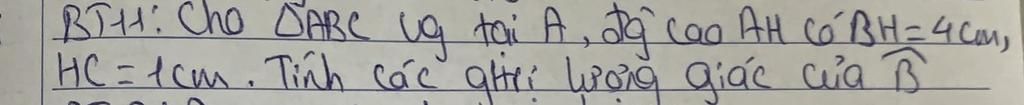 BT11: Cho ΔABC vg tại A, đg cao AH có BH=4cm,
HC=1cm. Tính các gtrị lượng giác của B̂